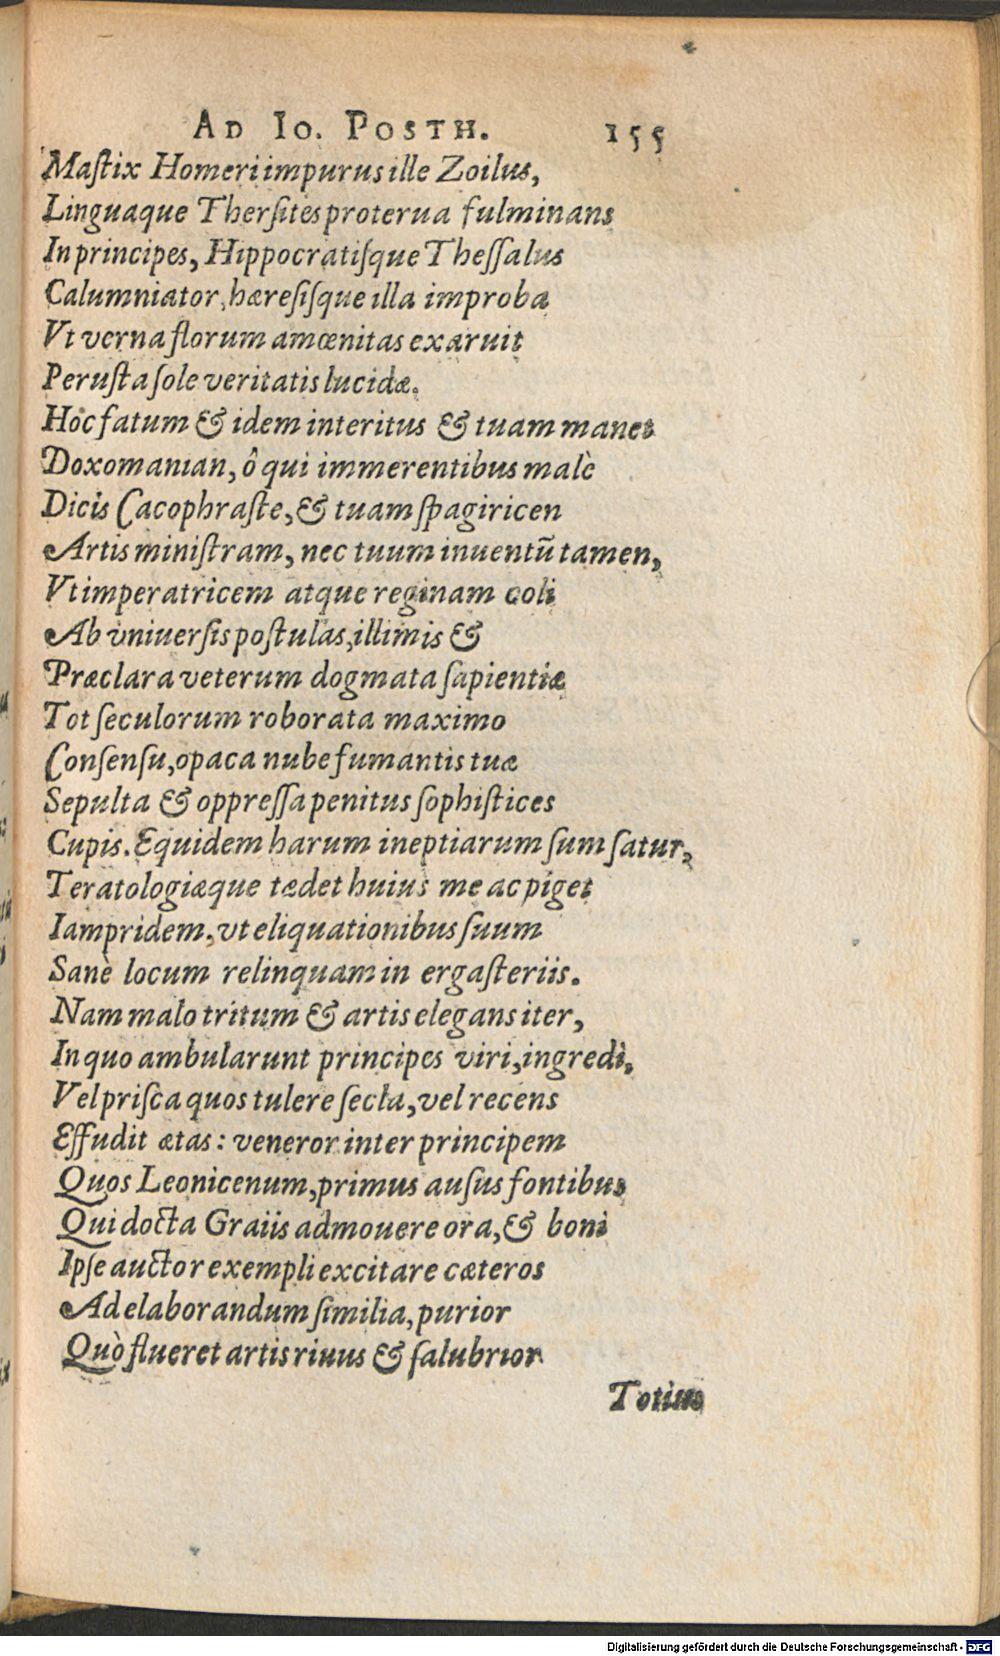 AD IO. POSTH. 155
Maſtix Homeri impurus ille Zoilus,
Linguaque Therſites proterua fulminans
In principes, Hippocratiſque Theſſalus
Calumniator, hæreſiſque illa improba
Vt verna florum amœnitas exaruit
Peruſta ſole veritatis lucidæ.
Hoc fatum & idem interitus & tuam manet
Doxomanian, ô qui immerentibus malè
Dicis Cacophraſte, & tuam ſpagiricen
Artis miniſtram, nec tuum inuentū tamen,
Vt imperatricem atque reginam coli
Ab vniuerſis poſtulas, illimis &
Præclara veterum dogmata ſapientiæ
Tot ſeculorum roborata maximo
Conſenſu, opaca nube fumantis tuæ
Sepulta & oppreſſa penitus ſophiſtices
Cupis. Equidem harum ineptiarum ſum ſatur,
Teratologiæque tædet huius me ac piget
Iampridem, vt eliquationibus ſuum
Sanè locum relinquam in ergaſteriis.
Nam malo tritum & artis elegans iter,
In quo ambularunt principes viri, ingredi,
Vel priſca quos tulere ſecla, vel recens
Effudit ætas: veneror inter principem
Quos Leonicenum, primus auſus fontibus
Qui docta Graiis admouere ora, & boni
Ipſe auctor exempli excitare cæteros
Ad elaborandum ſimilia, purior
Quò flueret artis riuus & ſalubrior
Totius
Digitalisierung gefördert durch die Deutsche Forschungsgemeinschaft - DFG